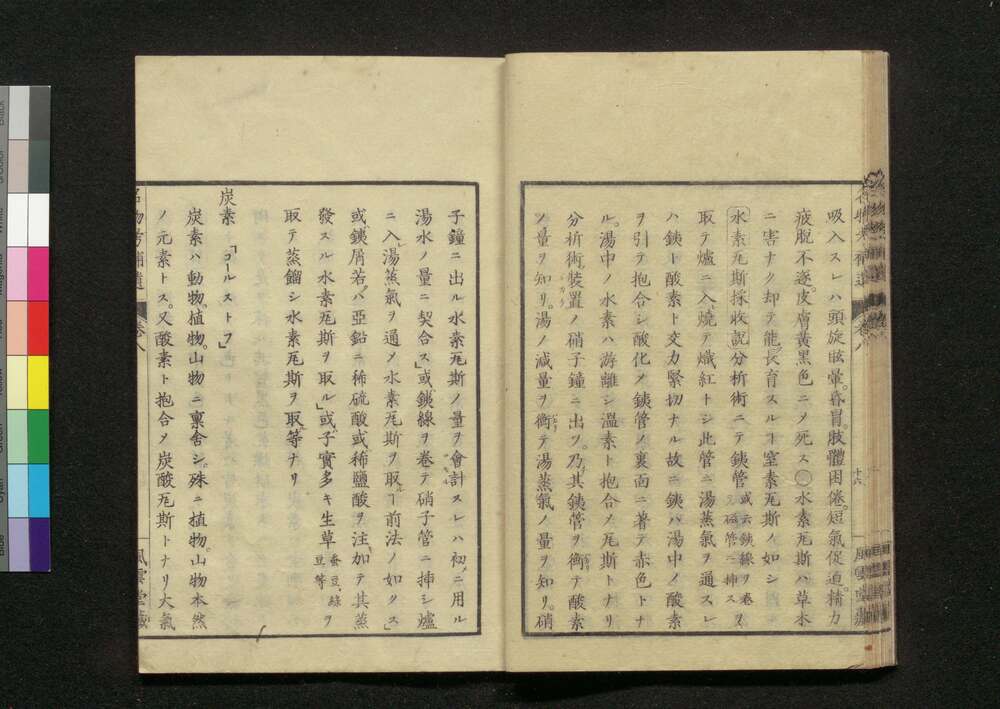 吸入スレハ頭旋眩暈。昏冒。肢體困倦。短氣促迫。精力
疲脱不遂。皮膚黄黒色ニメ死ス○水素瓦斯ハ草木
ニ害ナク却テ能長育スルヿ窒素瓦斯ノ如シ
水素瓦斯採收説分析術ニテ銕管或云銕線ヲ巻テ硝管ニ挿スヲ
取テ爐ニ入燒テ熾紅トシ此管ニ湯蒸氣ヲ通スレ
ハ銕ト酸素ト交力緊切ナル故ニ銕ハ湯中ノ酸素
ヲ引テ抱合シ酸化メ銕管ノ裏面ニ著テ赤色トナ
ル。湯中ノ水素ハ游離シ温素ト抱合メ瓦斯トナリ
分析術裝置ノ硝子鐘ニ出ツ。乃其銕管ヲ衡テ酸素
ノ量ヲ知リ。湯ノ減量ヲ衡テ湯蒸氣ノ量ヲ知リ。硝
十六
風雲堂藏
子鐘ニ出ル水素瓦斯ノ量ヲ會計スレハ初ニ用ル
湯水ノ量ニ契合ス」或銕線ヲ巻テ硝子管ニ挿シ爐
ニ入湯蒸氣ヲ通メ水素瓦斯ヲ取ヿ前法ノ如クス」
或銕屑若ハ亞鉛ニ稀硫酸或稀鹽酸ヲ注加テ其蒸
發スル水素瓦斯ヲ取ル」或子實多キ生草蚕豆、緑豆等ヲ
取テ蒸餾シ水素瓦斯ヲ取等ナリ
炭素「コールストフ」
炭素ハ動物。植物。山物ニ稟舎シ。殊ニ植物。山物本然
ノ元素トス。又酸素ト抱合メ炭酸瓦斯トナリ大氣
名物考補遺 巻八
風雲堂藏